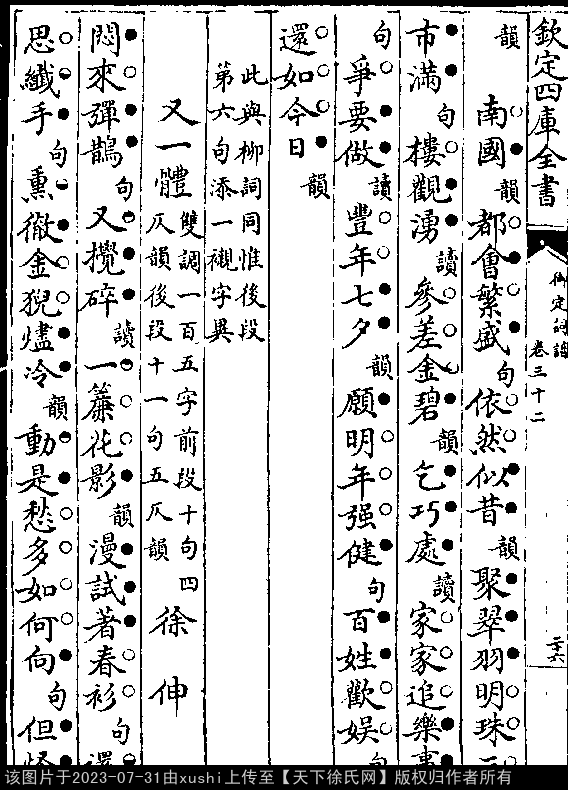 欽定四庫全書
御定詞譜
卷三十二
二十六
韻 南國韻都會繁盛句依然似昔韻聚翠羽明珠三
市滿句樓觀湧讀參差金碧韻乞巧處讀家家追樂事
句爭要做讀豐年七夕韻願明年强健句百姓歡娛句
還如今日韻
此與柳詞同惟後段
第六句添一襯字異
又一體 雙調一百五字前段十句四
仄韻後段十一句五仄韻 徐伸
悶來彈鵲句又攪碎讀一簾花影韻漫試著春衫句還
思纖手句熏徹金猊燼冷韻動是愁多如何向句但怪
该图片于2023-07-31由xushi上传至【天下徐氏网】版权归作者所有